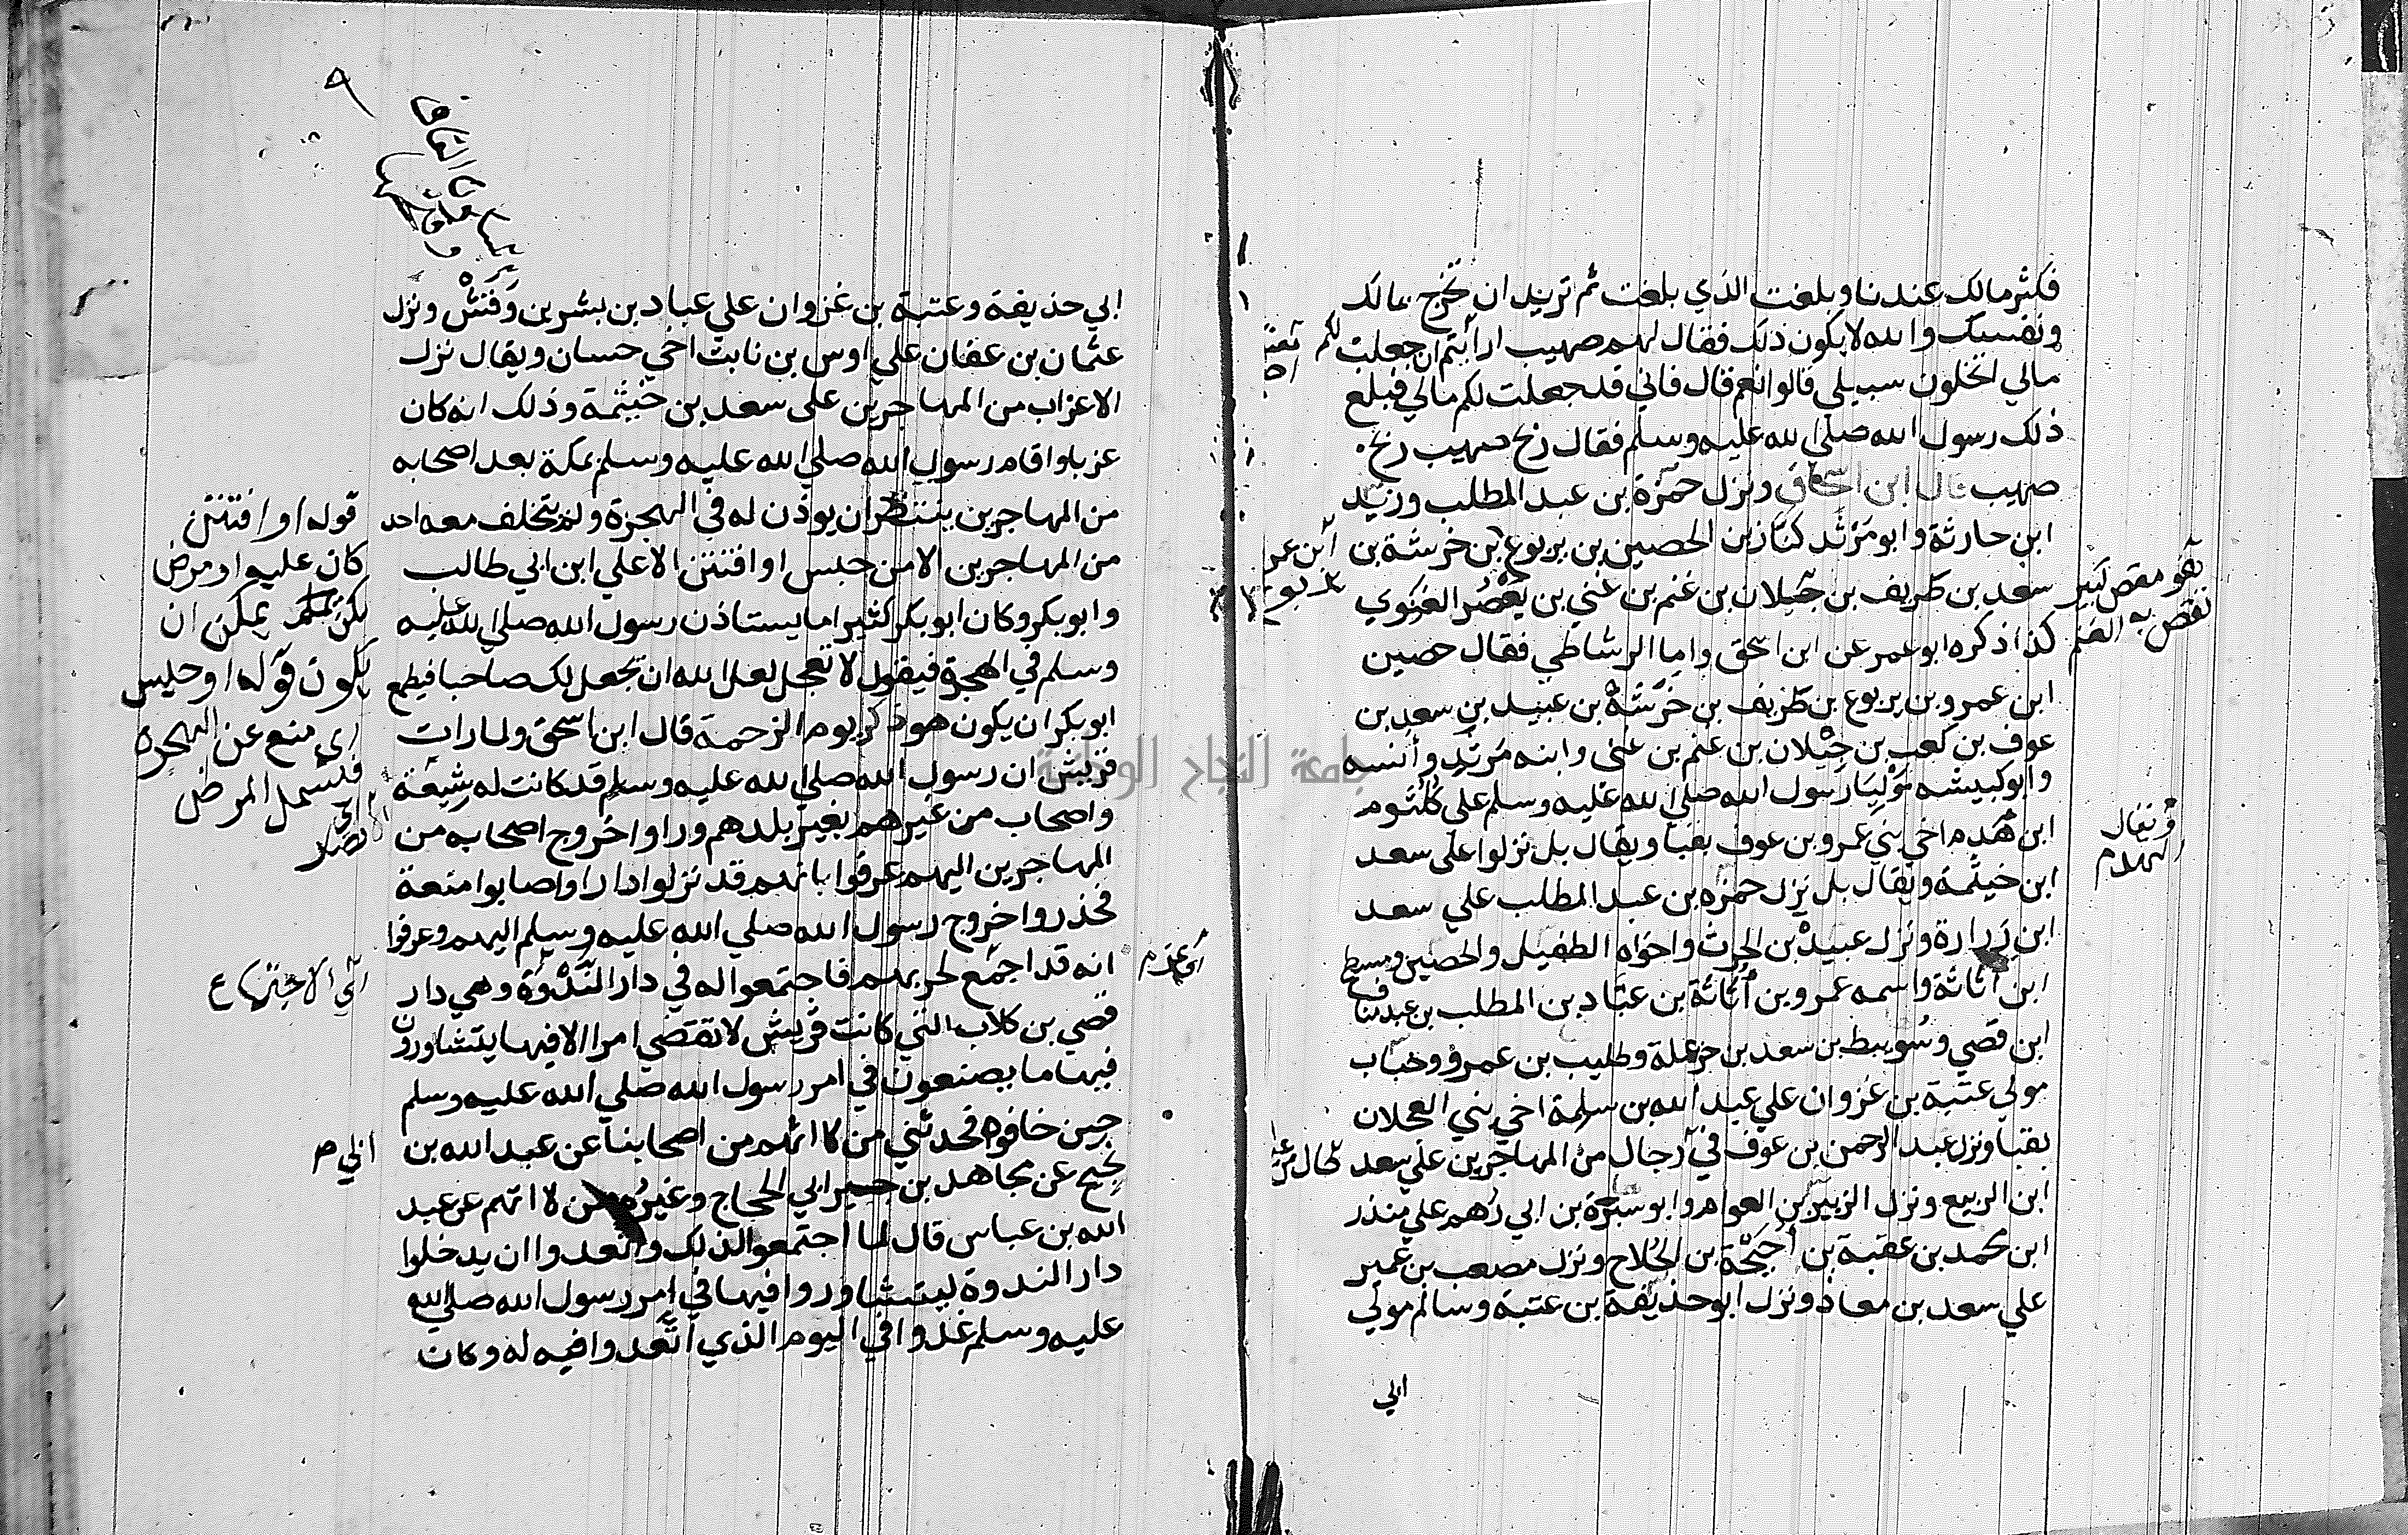 فكثر مالك عندنا وبلغت الذي بلغت ثم تريد ان تخرج بمالك
ونفسك والله لا يكون ذلك فقال لهم صهيب ارأيتم ان جعلت لكم
مالي اتخلون سبيلي قالوا نعم قال فاني قد جعلت لكم مالي فبلغ
ذلك رسول الله صلي الله عليه وسلم فقال ربح صهيب ربح
صهيب قال ابن اسحاق ونزل حمزة بن عبد المطلب وزيد
ابن حارثة وابو مرثد كناز بن الحصين بن يربوع بن خرشة بن
سعد بن طريف بن جيلان بن غنم بن غني بن يعصر الغنوي
كذا ذكره ابو عمر عن ابن اسحق واما الرشاطي فقال حصين
ابن عمرو بن يربوع بن طريف بن خرشة بن عبيد بن سعد بن
عوف بن كعب بن جيلان بن غنم بن غني وابنه مرثد وأنسه
وابو كبيشه موليا رسول الله صلي الله عليه وسلم علي كلثوم
ابن هدم اخي بني عمرو بن عوف بقبا ويقال بل نزلوا علي سعد
ابن خيثمة ويقال بل نزل حمزه بن عبد المطلب علي سعد
ابن زرارة ونزل عبيدة بن الحرث واخواه الطفيل والحصين ومسطح
ابن أثاثة واسمه عمرو بن أثاثة بن عباد بن المطلب بن عبد مناف
ابن قصي وسويبط بن سعد بن حرملة وطليب بن عمرو وخباب
مولي عتبة بن غزوان علي عبد الله بن سلمة اخي بني العجلان
بقبا ونزل عبد الرحمن بن عوف في رجال من المهاجرين علي سعد
ابن الربيع ونزل الزبير بن العوام وابو سبرة بن ابي رهم علي منذر
ابن محمد بن عقبة بن أحيحة بن الجلاح ونزل مصعب بن عمير
علي سعد بن معاذ ونزل ابو حذيفة بن عتبة وسالم مولي
الي
ابن عمر
بن يربوع
ويقال
الهدم
٩
ابي حذيفة وعتبة بن غزوان علي عباد بن بشر بن وقش ونزل
عثمان بن عفان علي اوس بن ثابت اخي حسان ويقال نزل
الاعزاب من المهاجرين علي سعد بن خيثمة وذلك انه كان
عزبا واقام رسول الله صلي الله عليه وسلم بمكة بعد اصحابه
من المهاجرين ينتظر ان يوذن له في الهجرة ولم يتخلف معه احد
من المهاجرين الا من حبس او افتتن الا علي ابن ابي طالب
وابو بكر وكان ابو بكر كثيرا ما يستاذن رسول الله صلي الله عليه
وسلم في الهجرة فيقول لا تعجل لعل الله ان يجعل لك صاحبا فيطمع
ابو بكر ان يكون هو ذكر يوم الزحمة قال ابن اسحق ولما رات
قريش ان رسول الله صلي الله عليه وسلم قد كانت له شيعة
واصحاب من غيرهم بغير بلدهم وراوا خروج اصحابه من
المهاجرين اليهم عرفوا بانهم قد نزلوا دارا واصابوا منعة
فحذروا خروج رسول الله صلي الله عليه وسلم اليهم وعرفوا
انه قد اجمع لحربهم فاجتمعوا له في دار الندوة وهي دار
قصي بن كلاب التي كانت قريش لا تقضي امرا الا فيها يتشاورون
فيها ما يصنعون في امر رسول الله صلي الله عليه وسلم
حين خافوه فحدثني من لا اتهم من اصحابنا عن عبد الله بن
نجيح عن مجاهد بن جبير ابي الحجاج وغيره ممن لا اتهم عن عبد
الله بن عباس قال لما اجتمعوا لذلك واتعدوا ان يدخلوا
دار الندوة ليتشاوروا فيها في امر رسول الله صلي الله
عليه وسلم غدوا في اليوم الذي اتعدوا فيه له وكان
قوله او افتتن
كان عليه او مرض
لكن يمكن ان
يكون قوله او حبس
اي منع عن الهجره
فتشمل المرض
اي الانصار
اي عزم
الي الاجتماع
ابي م
جامعة النجاح الوطنية